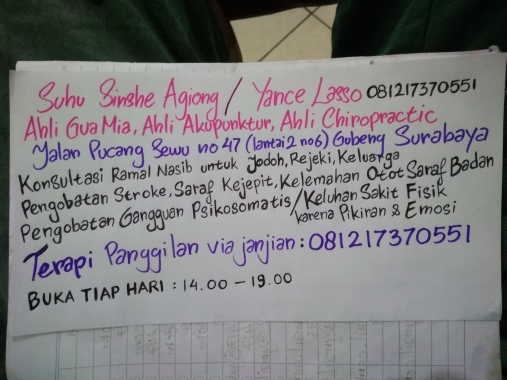 Suhu Sinshe Agiong / Yance Lasso 081217370551
Ahli Gua Mia, Ahli Akupunktur, Ahli Chiropractic
Jalan Pucang Sewu no 47 (lantai 2 no 6) Gubeng Surabaya
Konsultasi Ramal Nasib untuk Jodoh, Rejeki, Keluarga
Pengobatan Stroke, Saraf Kejepit, Kelemahan Otot Saraf Badan
Pengobatan Gangguan Psikosomatis / Keluhan Sakit Fisik
karena Pikiran & Emosi
Terapi Panggilan via janjian : 081217370551
BUKA TIAP HARI : 14.00 - 19.00